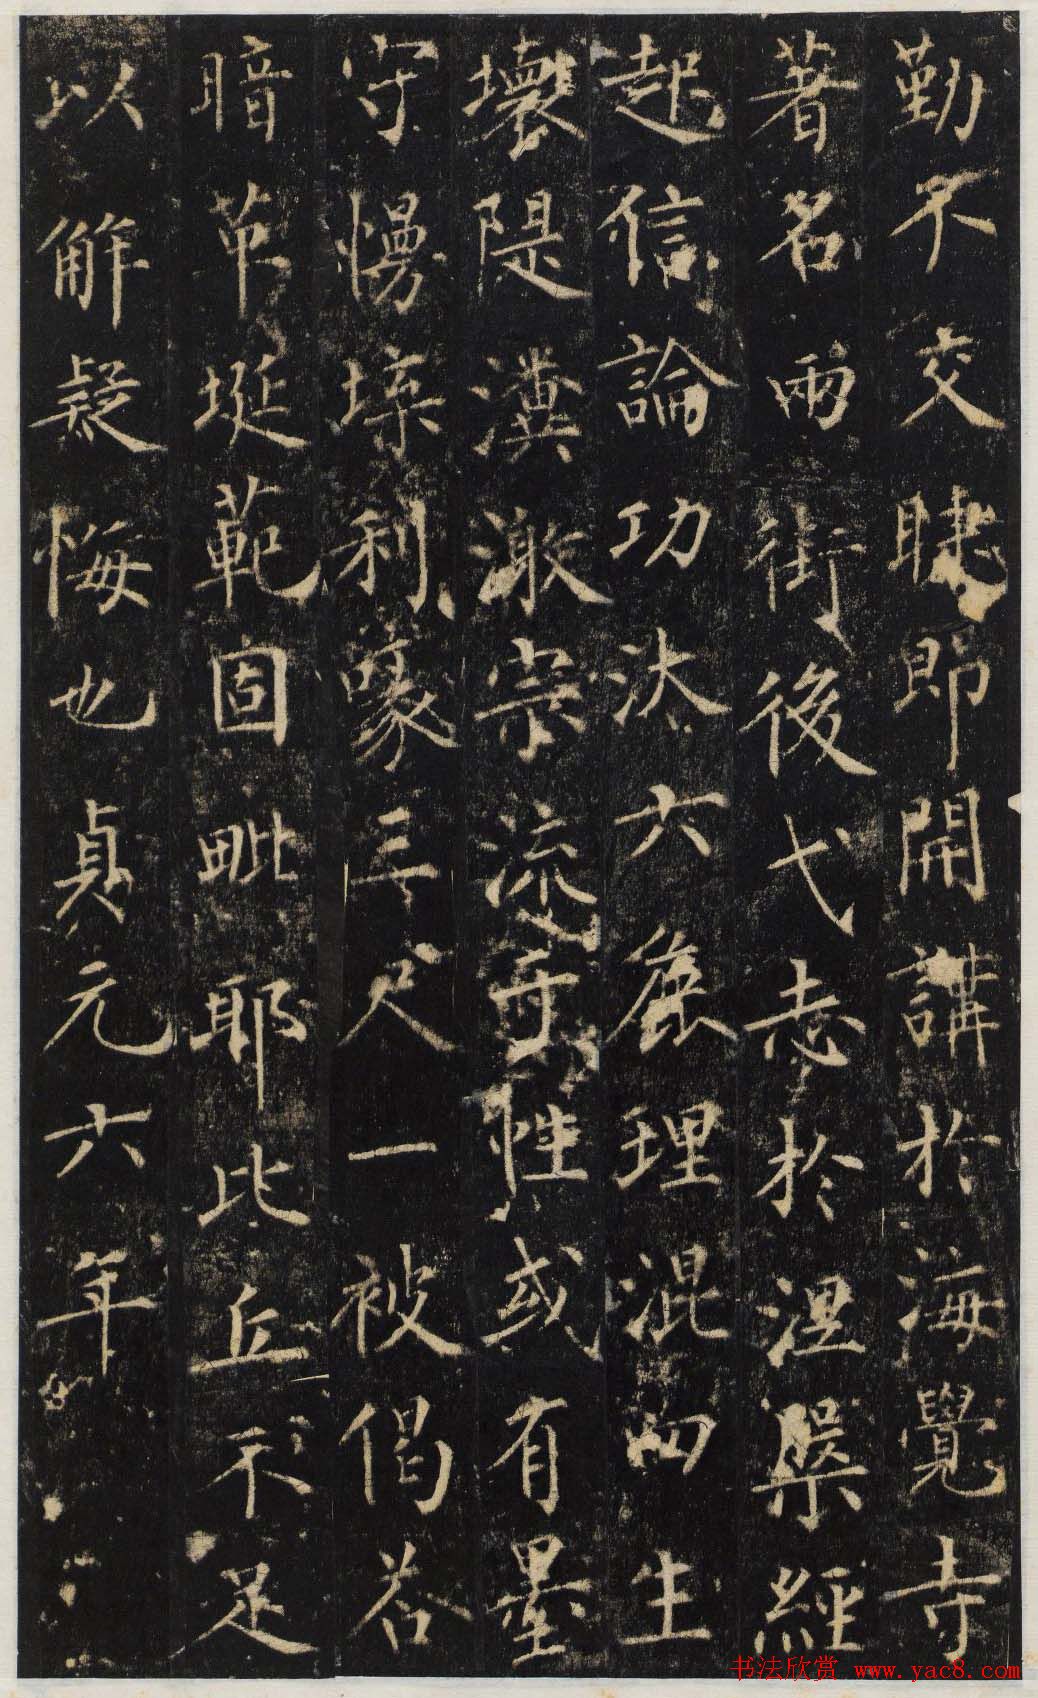 勤不交睫即開講於海覺寺
著名兩街後弋志於涅槃經
起信論功汰六麁理混四生
壞隄瀵宗流于性或有墨
守慢利喙三尺一被偈荅
暗埏範固毗耶比丘不足
以解疑悔也貞元六年
书法欣赏 www.yac8.com